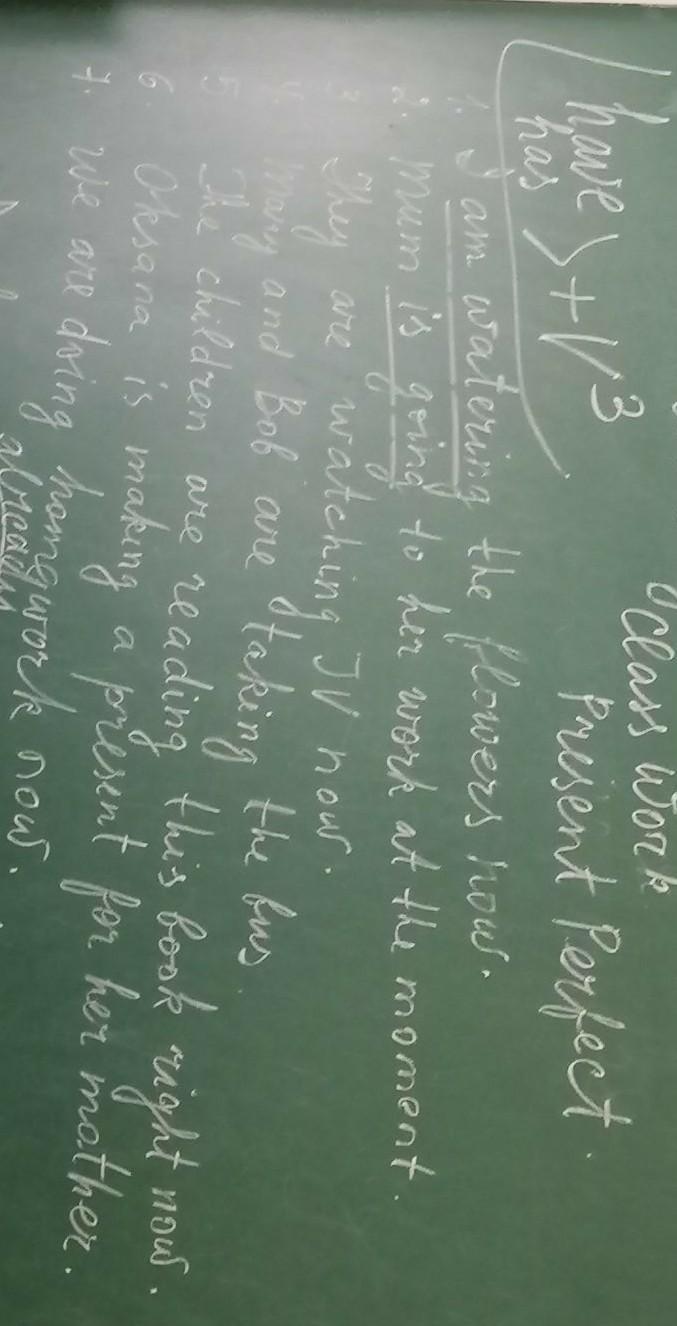 Class work
Present Perfect.
have
has > + V3
1. I am watering the flowers now.
2. Mum is going to her work at the moment.
3. They are watching TV now.
4. Mary and Bob are taking the bus.
5. The children are reading this book right now.
6. Oksana is making a present for her mother.
7. We are doing homework now.
already